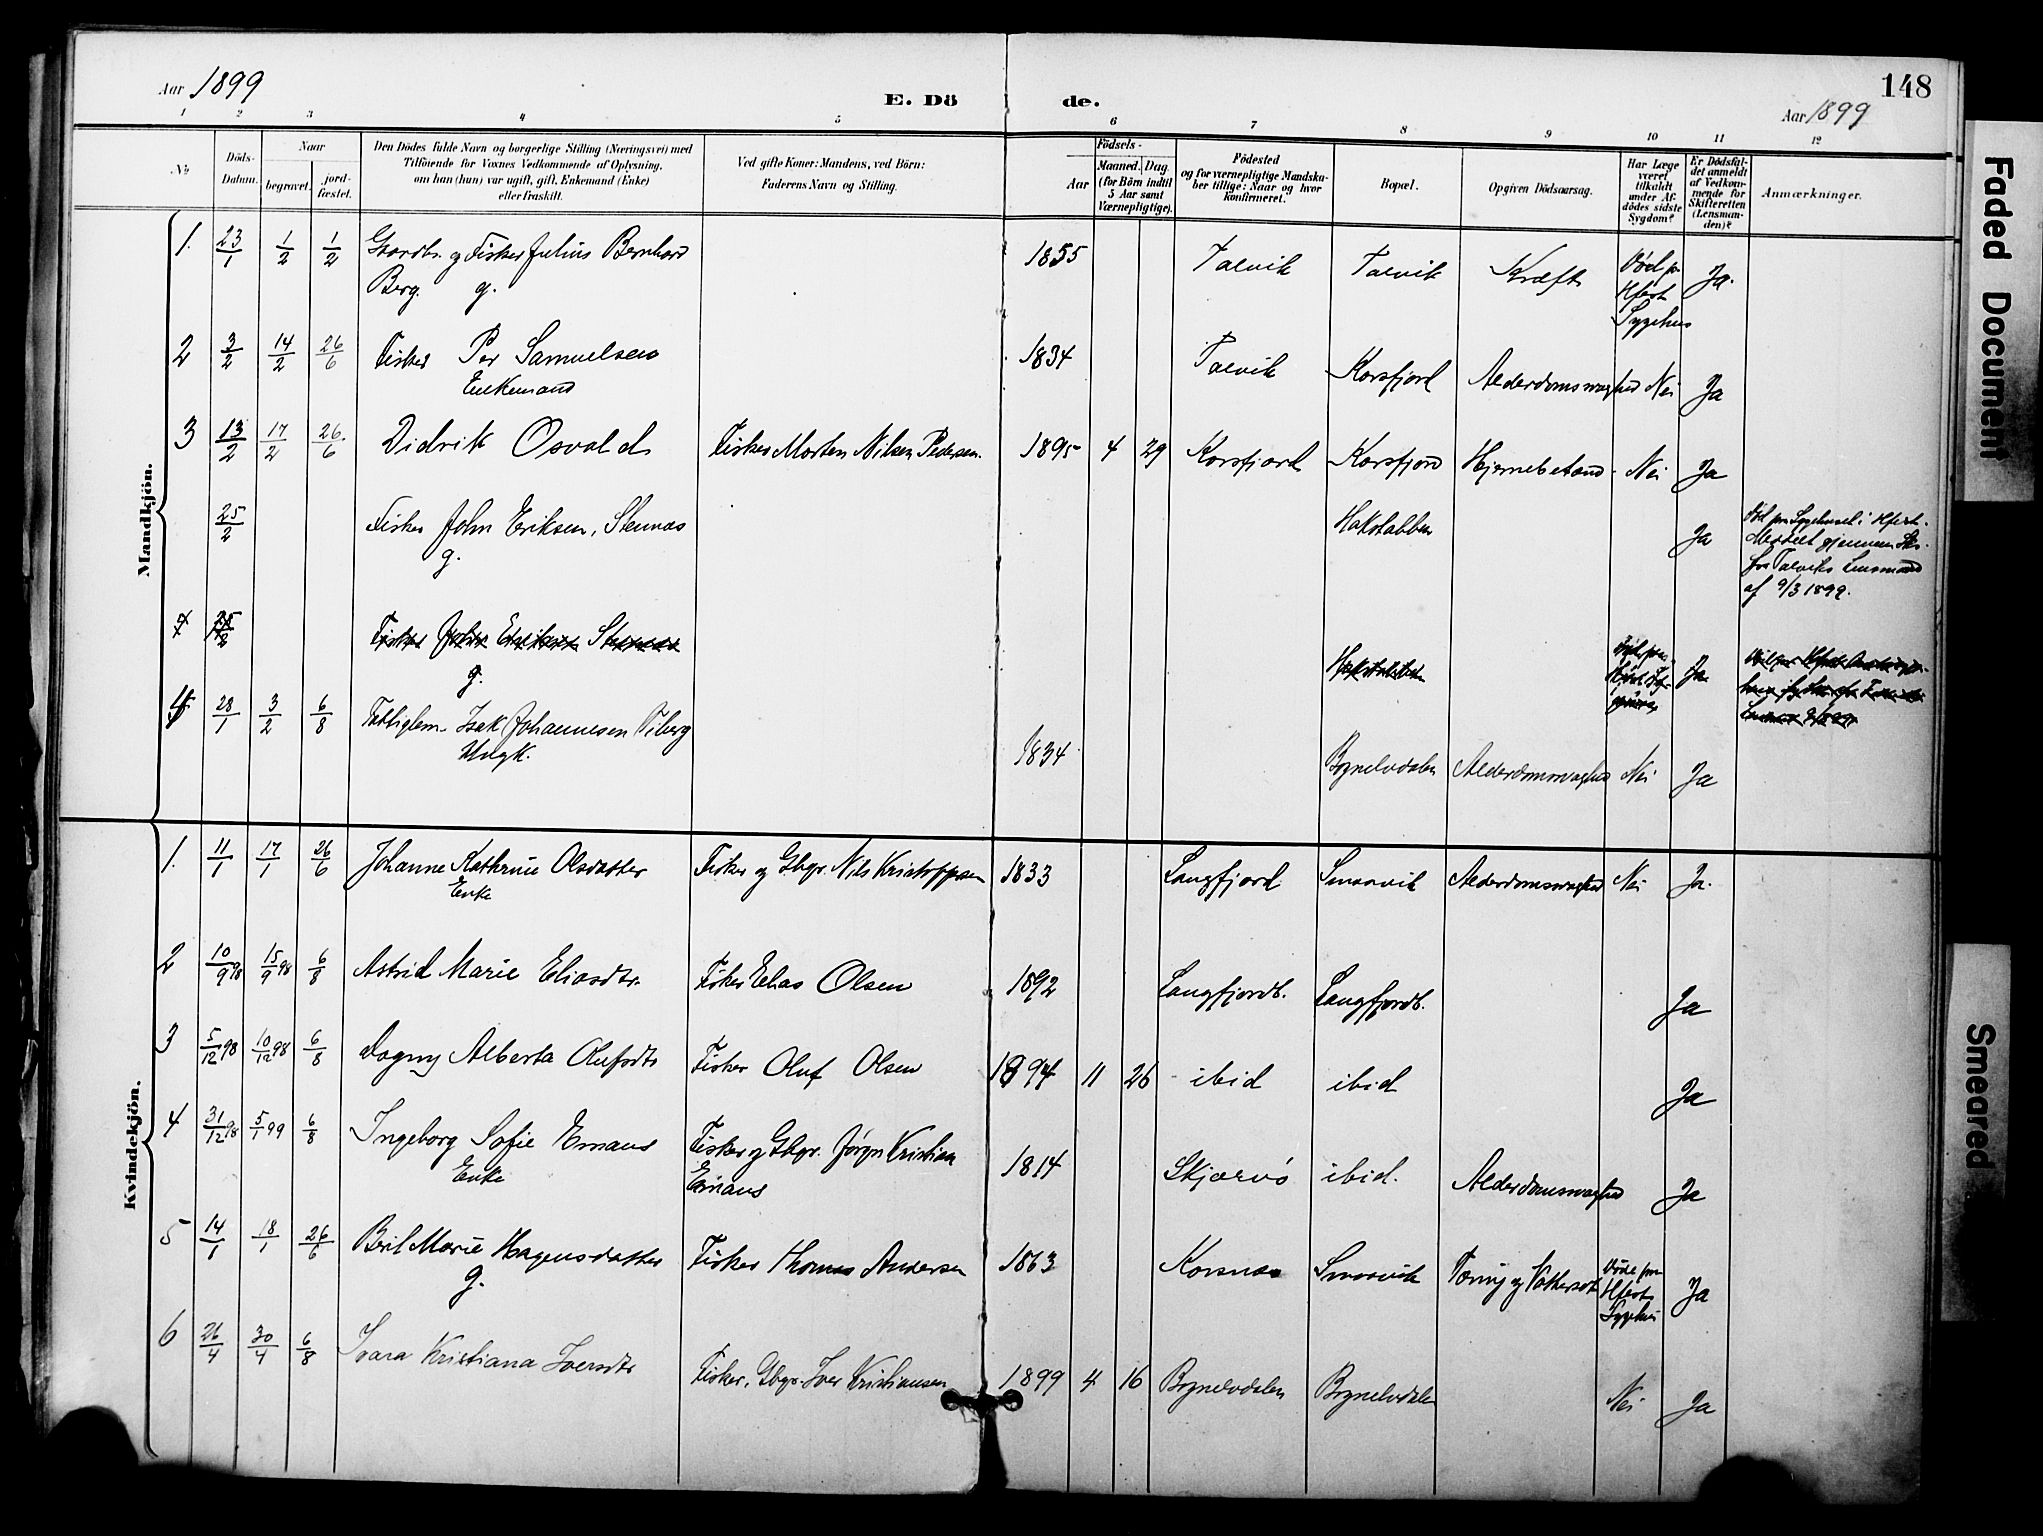 148
Aar 1899
E. Dö
de.
Aar 1899
1 2 3 4 5 6 7 8 9 10 11 12
№
Döds-Datum.
Naar
begravet.
jord-fæstet.
Den Dödes fulde Navn og borgerlige Stilling (Næringsvei) med
Tilföiende for Voxnes Vedkommende af Oplysning,
om han (hun) var ugift, gift, Enkemand (Enke)
eller fraskilt.
Ved gifte Koner: Mandens, ved Börn:
Faderens Navn og Stilling.
Födsels-
Aar
Maaned. Dag.
(for Börn indtil
5 Aar samt
Værnepligtige).
Födested
og for værnepligtige Mandska-
ber tillige: Naar og hvor
konfirmeret.
Bopæl.
Opgiven Dödsaarsag.
Har Læge
været
tilkaldt
under Af-
dödes sidste
Sygdom?
Er Dödsfal-
det anmeldt
af Vedkom-
mende for
Skifteretten
(Lensman-
den)?
Anmærkninger.
Mandkjön.
1. 23/1 1/2 1/2 Gaardbr. og Fisker Julius Bernhard 1855 Talvik Talvik Kræft Död paa Hfest Sygehus Ja.
Berg. g.
2 3/2 14/2 26/6 Fisker Per Samuelsen 1834 Talvik Korsfjord Alderdomssvaghed Nei Ja
Enkemand
3 13/2 17/2 26/6 Didrik Osvald Fisker Morten Nilsen Pedersen. 1895 4 29 Korsfjord Korsfjord Hjernebetænd. Nei Ja
25/2 Fisker John Eriksen, Stennæs Hakstabben Ja Död paa Sygehuset i Hfest.
g. Meddelt gjennem
for Talviks Lensmand
af 9/3 1899.
25/2 Fisker John Eriksen Stennæs Hakstabben Ja
g.
4 28/1 3/2 6/8 Fattiglem. Isak Johannesen Tiberg 1834 Bognelvdalen Alderdomssvaghed Nei Ja
Ungk.
Kvindekjön.
1. 11/1 17/1 26/6 Johanne Kathrine Olsdatter Fisker og Gbgr. Nils Kristoffersen 1833 Langfjord Smaavik Alderdomssvaghed Nei Ja.
Enke
2 10/9 98 15/9 98 6/8 Astrid Marie Eliasdtr. Fisker Elias Olsen 1892 Langfjordb. Langfjordb. Ja
3 5/12 98 10/12 98 6/8 Dagny Alberta Olufsdtr Fisker Oluf Olsen 1894 11 26 ibid ibid Ja
4 31/12 98 5/1 99 6/8 Ingeborg Sofie Emaus Fisker og Gbgr. Jörgn Kristian 1814 Skjærvö ibid. Alderdomssvaghed Ja
Enke Emaus
5 14/1 18/1 26/6 Beril Marie Magensdatter Fisker Thomas Andersen 1863 Korsnæs Smaavik Tæring og Vattersot Död paa Hfest Sygehus Ja
g.
6 26/4 30/4 6/8 Ivara Kristiana Iversdtr Fisker, Gbgr. Iver Kristiansen 1899 4 16 Bognelvdalen Bognelvdalen Nei Ja
Faded Document
Smeared